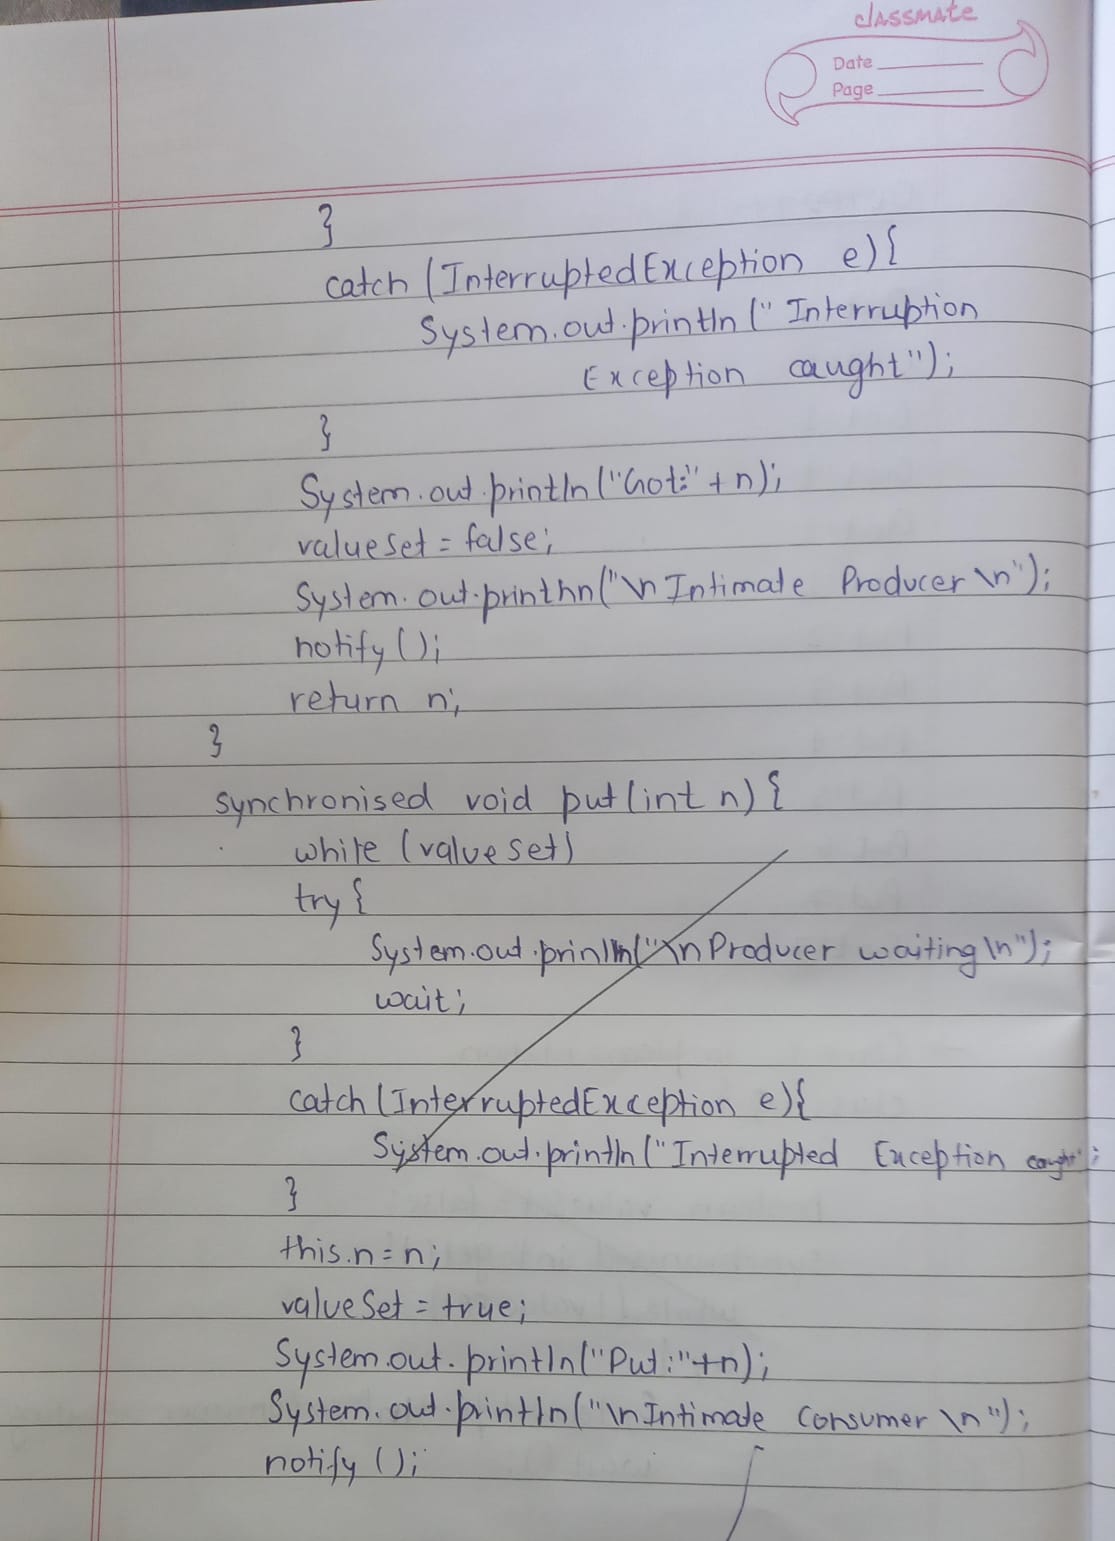 classmate
Date
Page
}
catch (InterruptedException e){
System.out.println (" Interruption
Exception caught");
}
System.out.println ("Got:" + n);
valueSet = false;
System.out.printhn("\n Intimate Producer \n");
notify ();
return n;
}
synchronised void put (int n) {
while (valueSet)
try {
System.out.println("\nProducer waiting \n");
wait;
}
catch (InterruptedException e){
System.out.println ("Interrupted Exception caught";
}
this.n = n;
valueSet = true;
System.out.println("Put :"+n);
System.out.println("\nIntimate Consumer \n");
notify ();